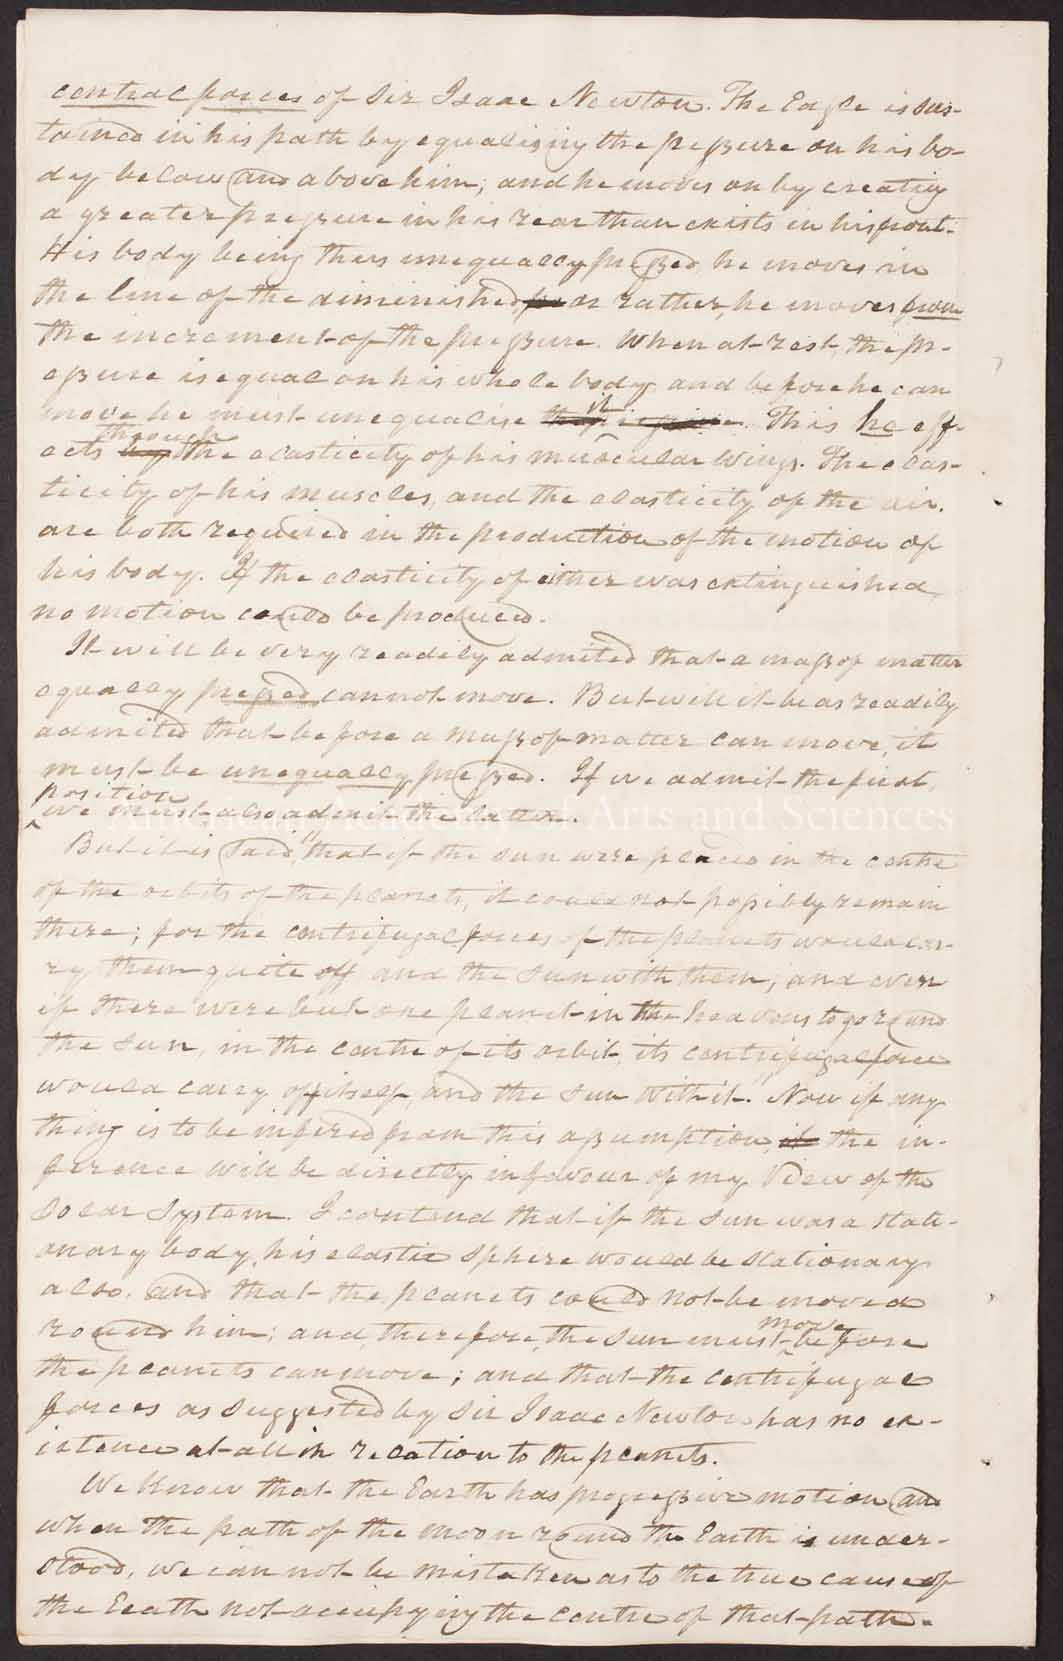 central forces of Sir Isaac Newton. The Eagle is sus-
tained in his path by equalising the pressure on his bo-
dy below and above him; and he moves on by creating
a greater pressure in his rear than exists in his front.
His body being thus unequally pressed he moves in
the line of the diminished, or rather, he moves from
the increment of the pressure. When at rest, the pr-
essure is equal on his whole body and before he can
move he must unequalise it. This he eff-
ects through the elasticity of his muscular wings. The elas-
ticity of his muscles, and the elasticity of the air.
are both required in the production of the motion of
his body. If the elasticity of either was extinguished,
no motion could be produced.
It will be very readily admited that a mass of matter
equally pressed cannot move. But will it be as readily
admited that before a mass of matter can move, it
must be unequally pressed. If we admit the first
position
we must also admit the latter.
American Academy of Arts and Sciences
But it is said, "that if the sun were placed in the centre
of the orbits of the planets, it could not possibly remain
there; for the centrifugal forces of the planets would car-
ry them quite off and the sun with them; and even
if there were but one planet in the heavens to go round
the sun, in the centre of its orbit, its centrifugal force
would carry off itself, and the sun with it." Now if any
thing is to be infered from this assumption, the in-
ference will be directly in favour of my view of the
Solar System. I contend that if the sun was a stati-
onary body, his elastic sphere would be stationary
also. and that the planets could not be moved
round him; and, therefore, the sun must move before
the planets can move; and that the centrifugal
forces as suggested by Sir Isaac Newton has no ex-
istence at all in relation to the planets.
We know that the Earth has progressive motion and
when the path of the moon round the Earth is under-
stood, we can not be mistaken as to the true cause of
the Earth not occupying the centre of that path.